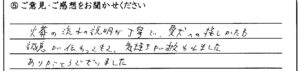 ⑤ご意見・ご感想をお聞かせください
火葬の流れの説明が丁寧で、愛犬への接しかたも
誠意が伝わってきて、気持ちが救われました
ありがとうございました